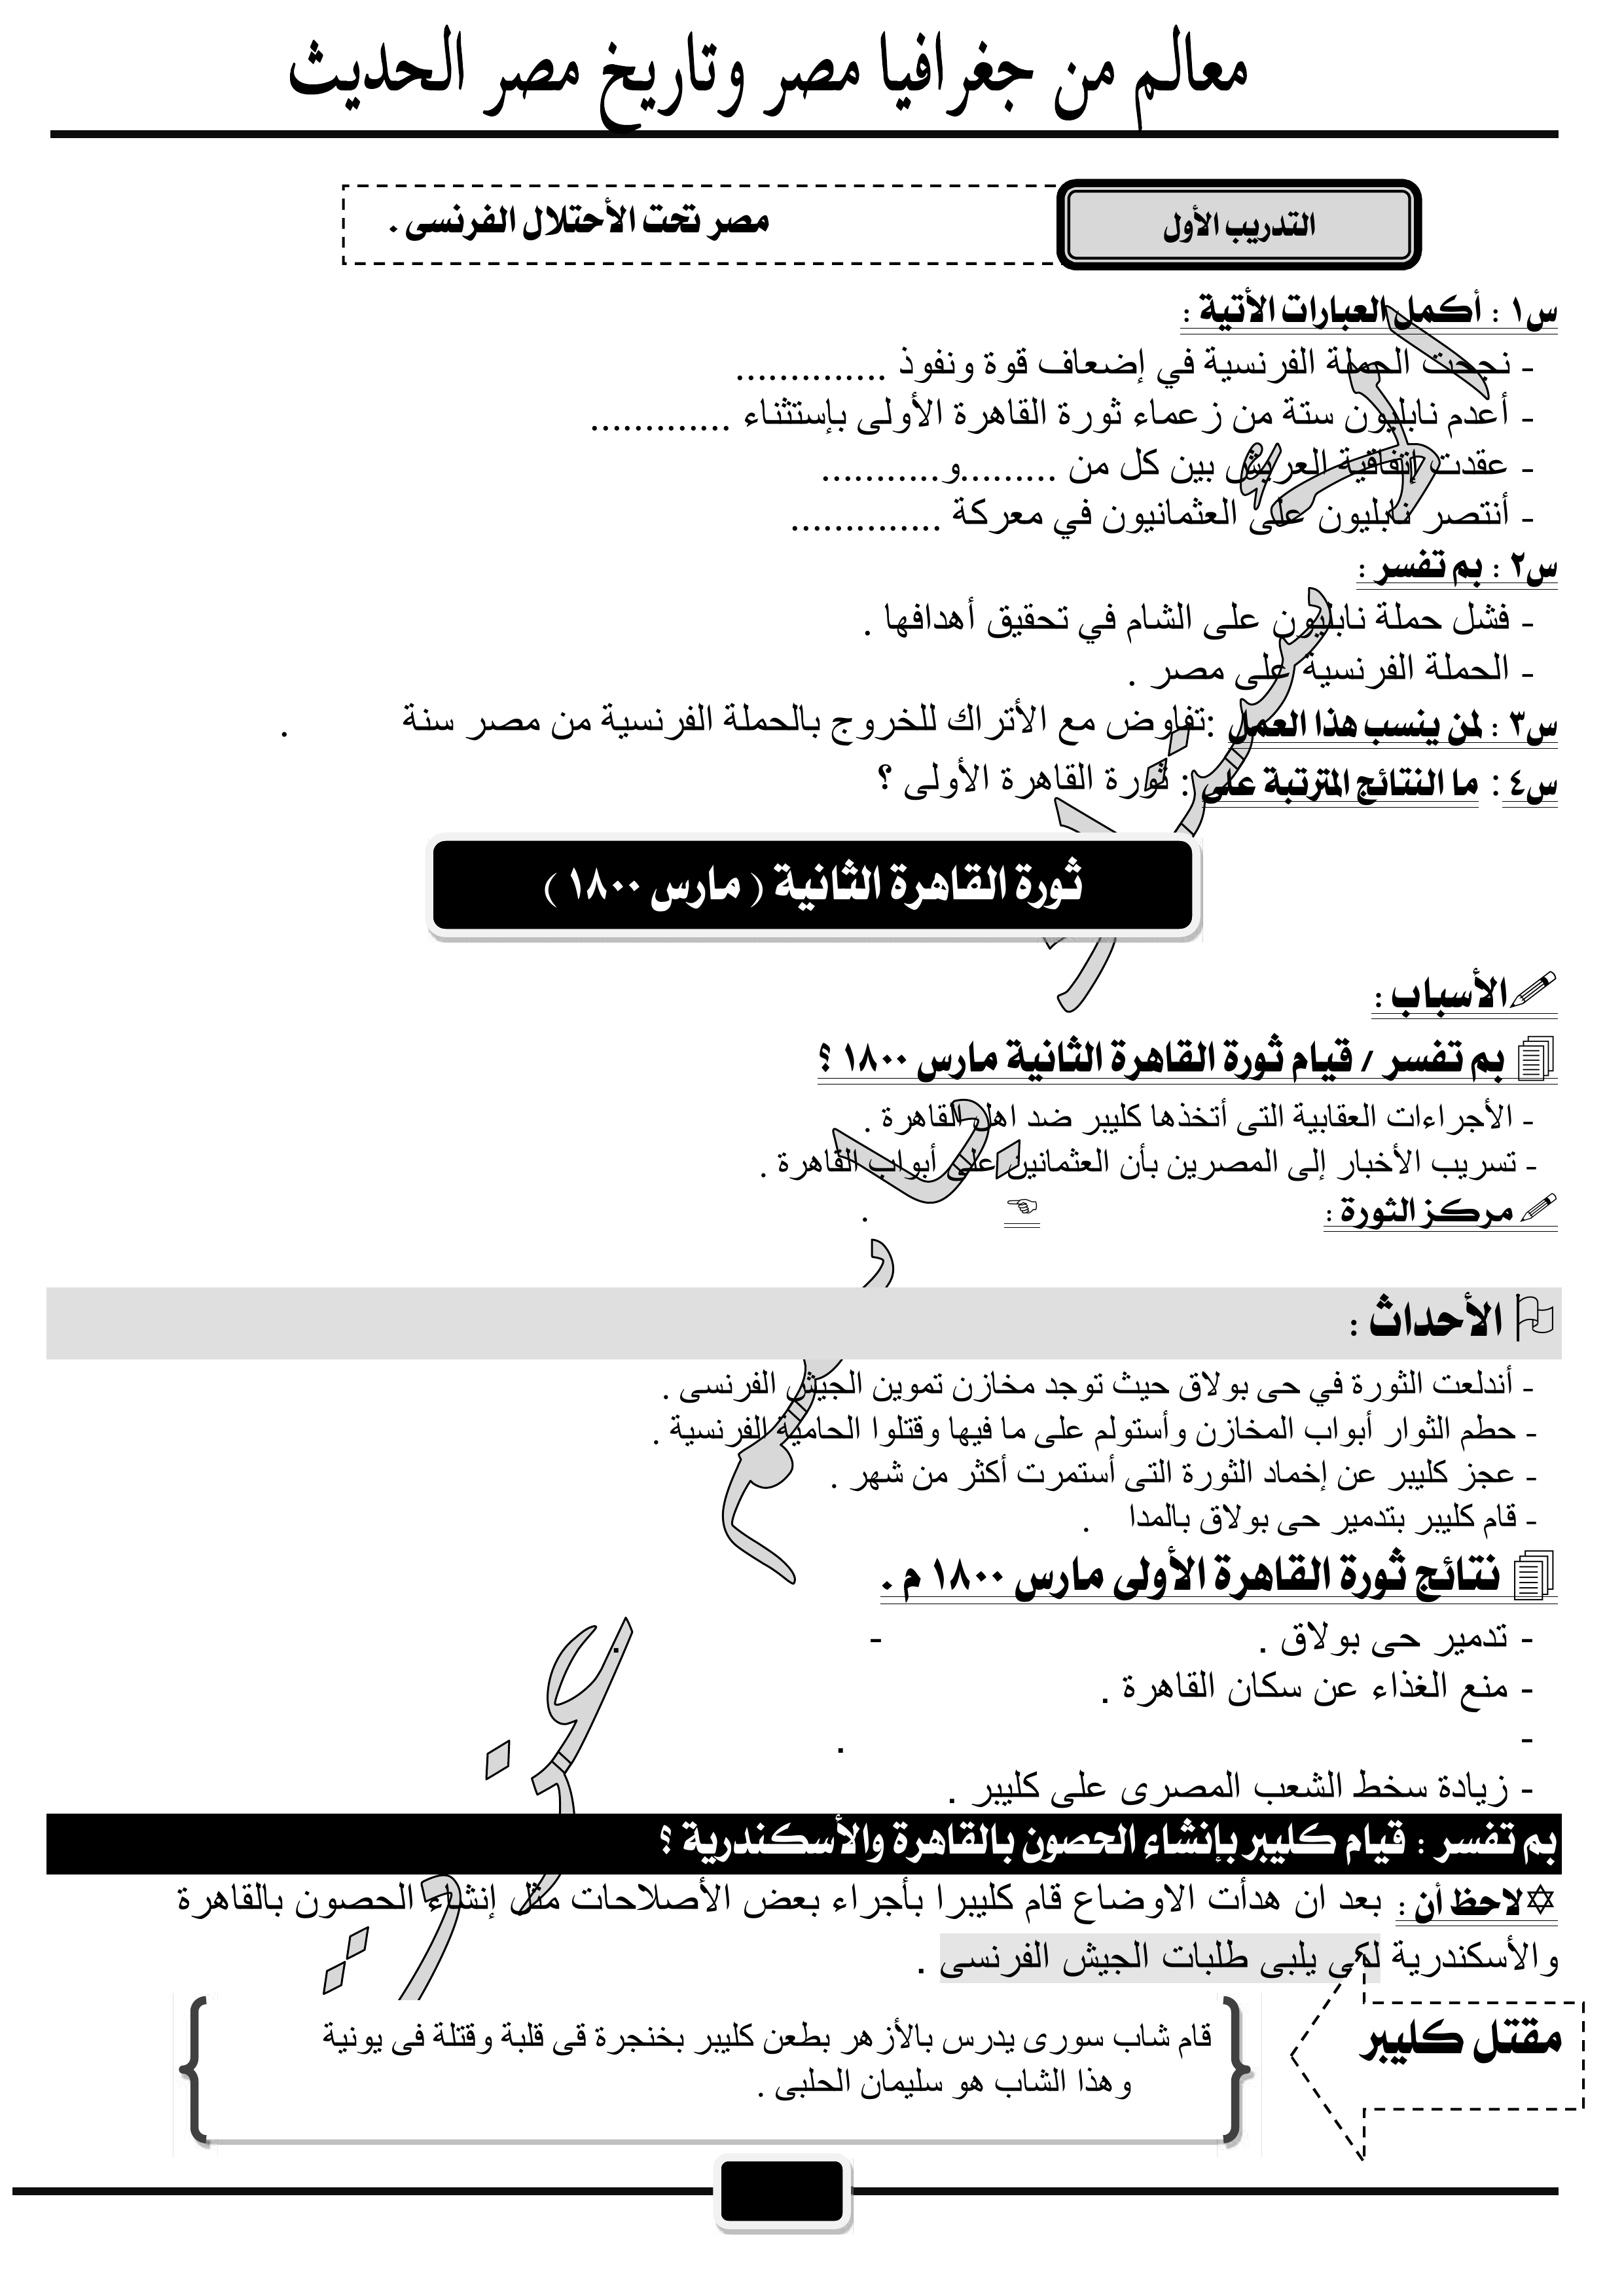 معالم من جغرافيا مصر وتاريخ مصر الحديث
التدريب الأول
مصر تحت الأحتلال الفرنسى .
س١ : أكمل العبارات الأتية :
- نجحت الحملة الفرنسية في إضعاف قوة ونفوذ ..............
- أعدم نابليون ستة من زعماء ثورة القاهرة الأولى بإستثناء .............
- عقدت إتفاقية العريش بين كل من .........و...........
- أنتصر نابليون على العثمانيون في معركة ..............
س٢ : بم تفسر :
- فشل حملة نابليون على الشام في تحقيق أهدافها .
- الحملة الفرنسية على مصر .
س٣ : لمن ينسب هذا العمل :تفاوض مع الأتراك للخروج بالحملة الفرنسية من مصر سنة .
س٤ : ما النتائج المترتبة على : ثورة القاهرة الأولى ؟
ثورة القاهرة الثانية ( مارس ١٨٠٠ )
الأسباب :
بم تفسر / قيام ثورة القاهرة الثانية مارس ١٨٠٠ ؟
- الأجراءات العقابية التى أتخذها كليبر ضد اهل القاهرة .
- تسريب الأخبار إلى المصرين بأن العثمانين على أبواب القاهرة .
مركز الثورة : .
الأحداث :
- أندلعت الثورة في حى بولاق حيث توجد مخازن تموين الجيش الفرنسى .
- حطم الثوار أبواب المخازن وأستولم على ما فيها وقتلوا الحامية الفرنسية .
- عجز كليبر عن إخماد الثورة التى أستمرت أكثر من شهر .
- قام كليبر بتدمير حى بولاق بالمدا .
نتائج ثورة القاهرة الأولى مارس ١٨٠٠ م .
- تدمير حى بولاق . - .
- منع الغذاء عن سكان القاهرة .
- .
- زيادة سخط الشعب المصرى على كليبر .
بم تفسر : قيام كليبر بإنشاء الحصون بالقاهرة والأسكندرية ؟
لاحظ أن : بعد ان هدأت الاوضاع قام كليبرا بأجراء بعض الأصلاحات مثل إنشاء الحصون بالقاهرة
والأسكندرية لكى يلبى طلبات الجيش الفرنسى .
مقتل كليبر
قام شاب سورى يدرس بالأزهر بطعن كليبر بخنجرة قى قلبة وقتلة فى يونية
وهذا الشاب هو سليمان الحلبى .